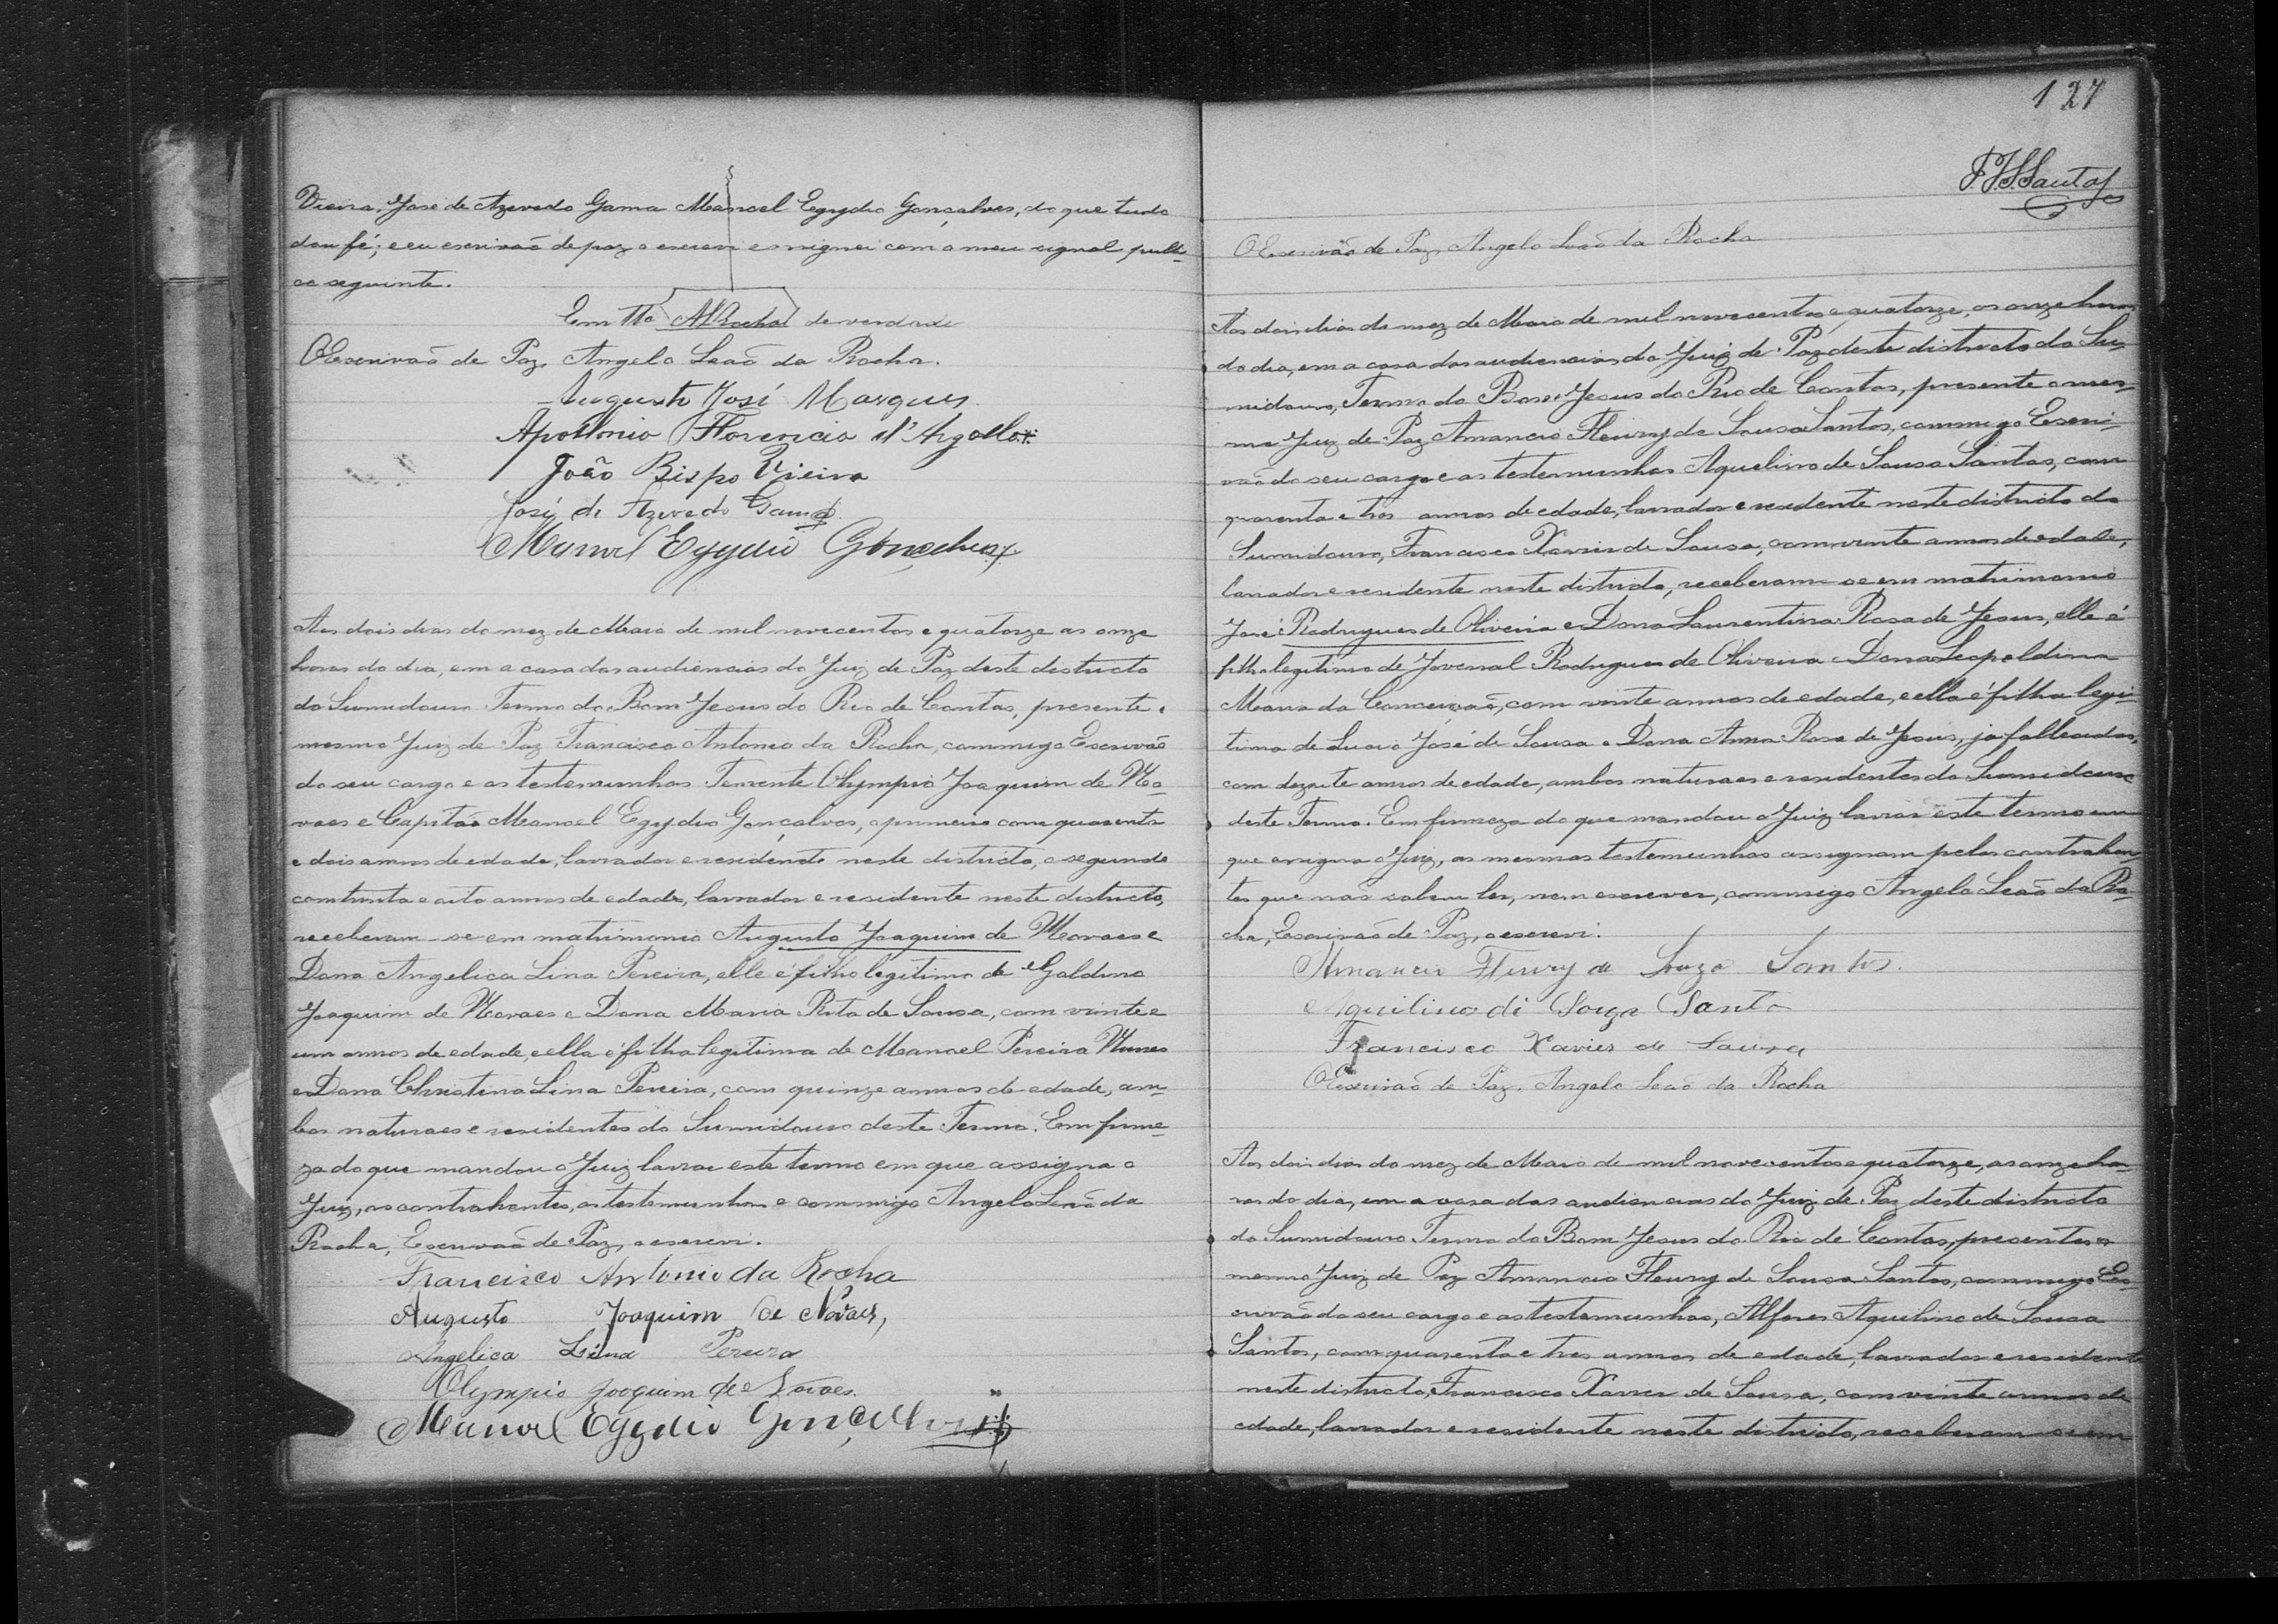 Vieira, José de Azevedo Gama Manoel Egydio Gonçalves, do que tudo
dou fé; e eu escrivão de paz o escrevi e assignei com o meu signal publi-
co seguinte.
Em tto ARocha de verdade
O Escrivão de Paz, Angelo Leão da Rocha.
Augusto José Marques
Apollonio Florencio d'Argollo
João Bispo Vieira
José de Azevedo Gama
Manoel Egydio Gonçalves
Aos dois dias do mez de Maio de mil novecentos e quatorze as onze
horas do dia, em a casa das audiencias do Juiz de Paz deste districto
do Sumidouro Termo do Bom Jesus do Rio de Contas, presente o
mesmo Juiz de Paz Francisco Antonio da Rocha, commigo Escrivão
do seu cargo e as testemunhas Tenente Olympio Joaquim de No-
vaes e Capitão Manoel Egydio Gonçalves, o primeiro com quarenta
e dois annos de edade, lavrador e residente neste districto, o segundo
com trinta e oito annos de edade, lavrador e residente neste districto,
receberam-se em matrimonio Augusto Joaquim de Novaes e
Dona Angelica Lina Pereira, elle é filho legitimo de Galdino
Joaquim de Novaes e Dona Maria Rita de Sousa, com vinte e
um annos de edade, e ella é filha legitima de Manoel Pereira Nunes
e Dona Christina Lina Pereira, com quinze annos de edade, am-
bos naturaes e residentes do Sumidouro deste Termo. Em firme-
za do que mandou o Juiz lavrar este termo em que assigna o
Juiz, os contrahentes, as testemunhas e commigo Angelo Leão da
Rocha, Escrivão de Paz, o escrevi.
Francisco Antonio da Rocha
Augusto Joaquim de Novaes,
Angelica Lina Pereira
Olympio Joaquim de Novaes.
Manoel Egydio Gonçalves
127
Santos
O Escrivão de Paz, Angelo Leão da Rocha
Aos dois dias do mez de Maio de mil novecentos e quatorze, as onze horas
do dia, em a casa das audiencias do Juiz de Paz deste districto do Su-
midouro, Termo do Bom Jesus do Rio de Contas, presente o mes-
mo Juiz de Paz Amancio Fleury de Sousa Santos, commigo Escri-
vão do seu cargo e as testemunhas Aquelino de Sousa Santos, com
quarenta e tres annos de edade, lavrador e residente neste districto do
Sumidouro, Francisco Xavier de Sousa, com vinte annos de edade,
lavrador e residente neste districto, receberam-se em matrimonio
José Rodrigues de Oliveira e Dona Laurentina Rosa de Jesus, elle é
filho legitimo de Jovenal Rodrigues de Oliveira e Dona Leopoldina
Maria da Conceição, com vinte annos de edade, e ella é filha legi-
tima de Lucio José de Sousa e Dona Anna Rosa de Jesus, ja fallecidos,
com dezoite annos de edade, ambos naturaes e residentes do Sumidouro
deste Termo. Em firmeza do que mandou o Juiz lavrar este termo em
que assigna o Juiz, as mesmas testemunhas assignam pelos contrahen-
tes que não sabem ler, nem escrever, commigo Angelo Leão da Ro-
cha, Escrivão de Paz, o escrevi.
Amancio Fleury de Souza Santos.
Aquilino di Souza Santo
Francisco Xavier de Sousa
O Escrivão de Paz, Angelo Leão da Rocha
Aos dois dias do mez de Maio de mil novecentos e quatorze, as onze ho-
ras do dia, em a casa das audiencias do Juiz de Paz deste districto
do Sumidouro Termo do Bom Jesus do Rio de Contas, presente o
mesmo Juiz de Paz Amancio Fleury de Sousa Santos, commigo Es-
crivão do seu cargo e as testemunhas, Alferes Aquilino de Sousa
Santos, com quarenta e tres annos de edade, lavrador e residente
neste districto, Francisco Xavier de Sousa, com vinte annos de
edade, lavrador e residente neste districto, receberam-se em